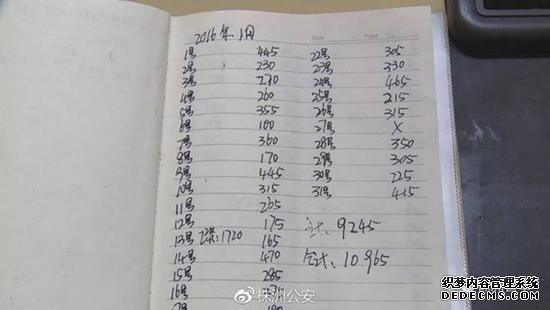 2016年 1月
Date
Page
1号 445
2号 230
3号 230
4号 260
5号 355
6号 100
7号 360
8号 170
9号 445
10号 315
11号 265
12号 175
13号 1720 165
14号 470
15号 285
16号
22号 305
23号 330
24号 465
25号 215
26号 315
27号 X
28号 350
29号 305
30号 225
31号 415
9245
合计: 10965
株洲公安
织梦内容管理系统
DEDECMS.COM